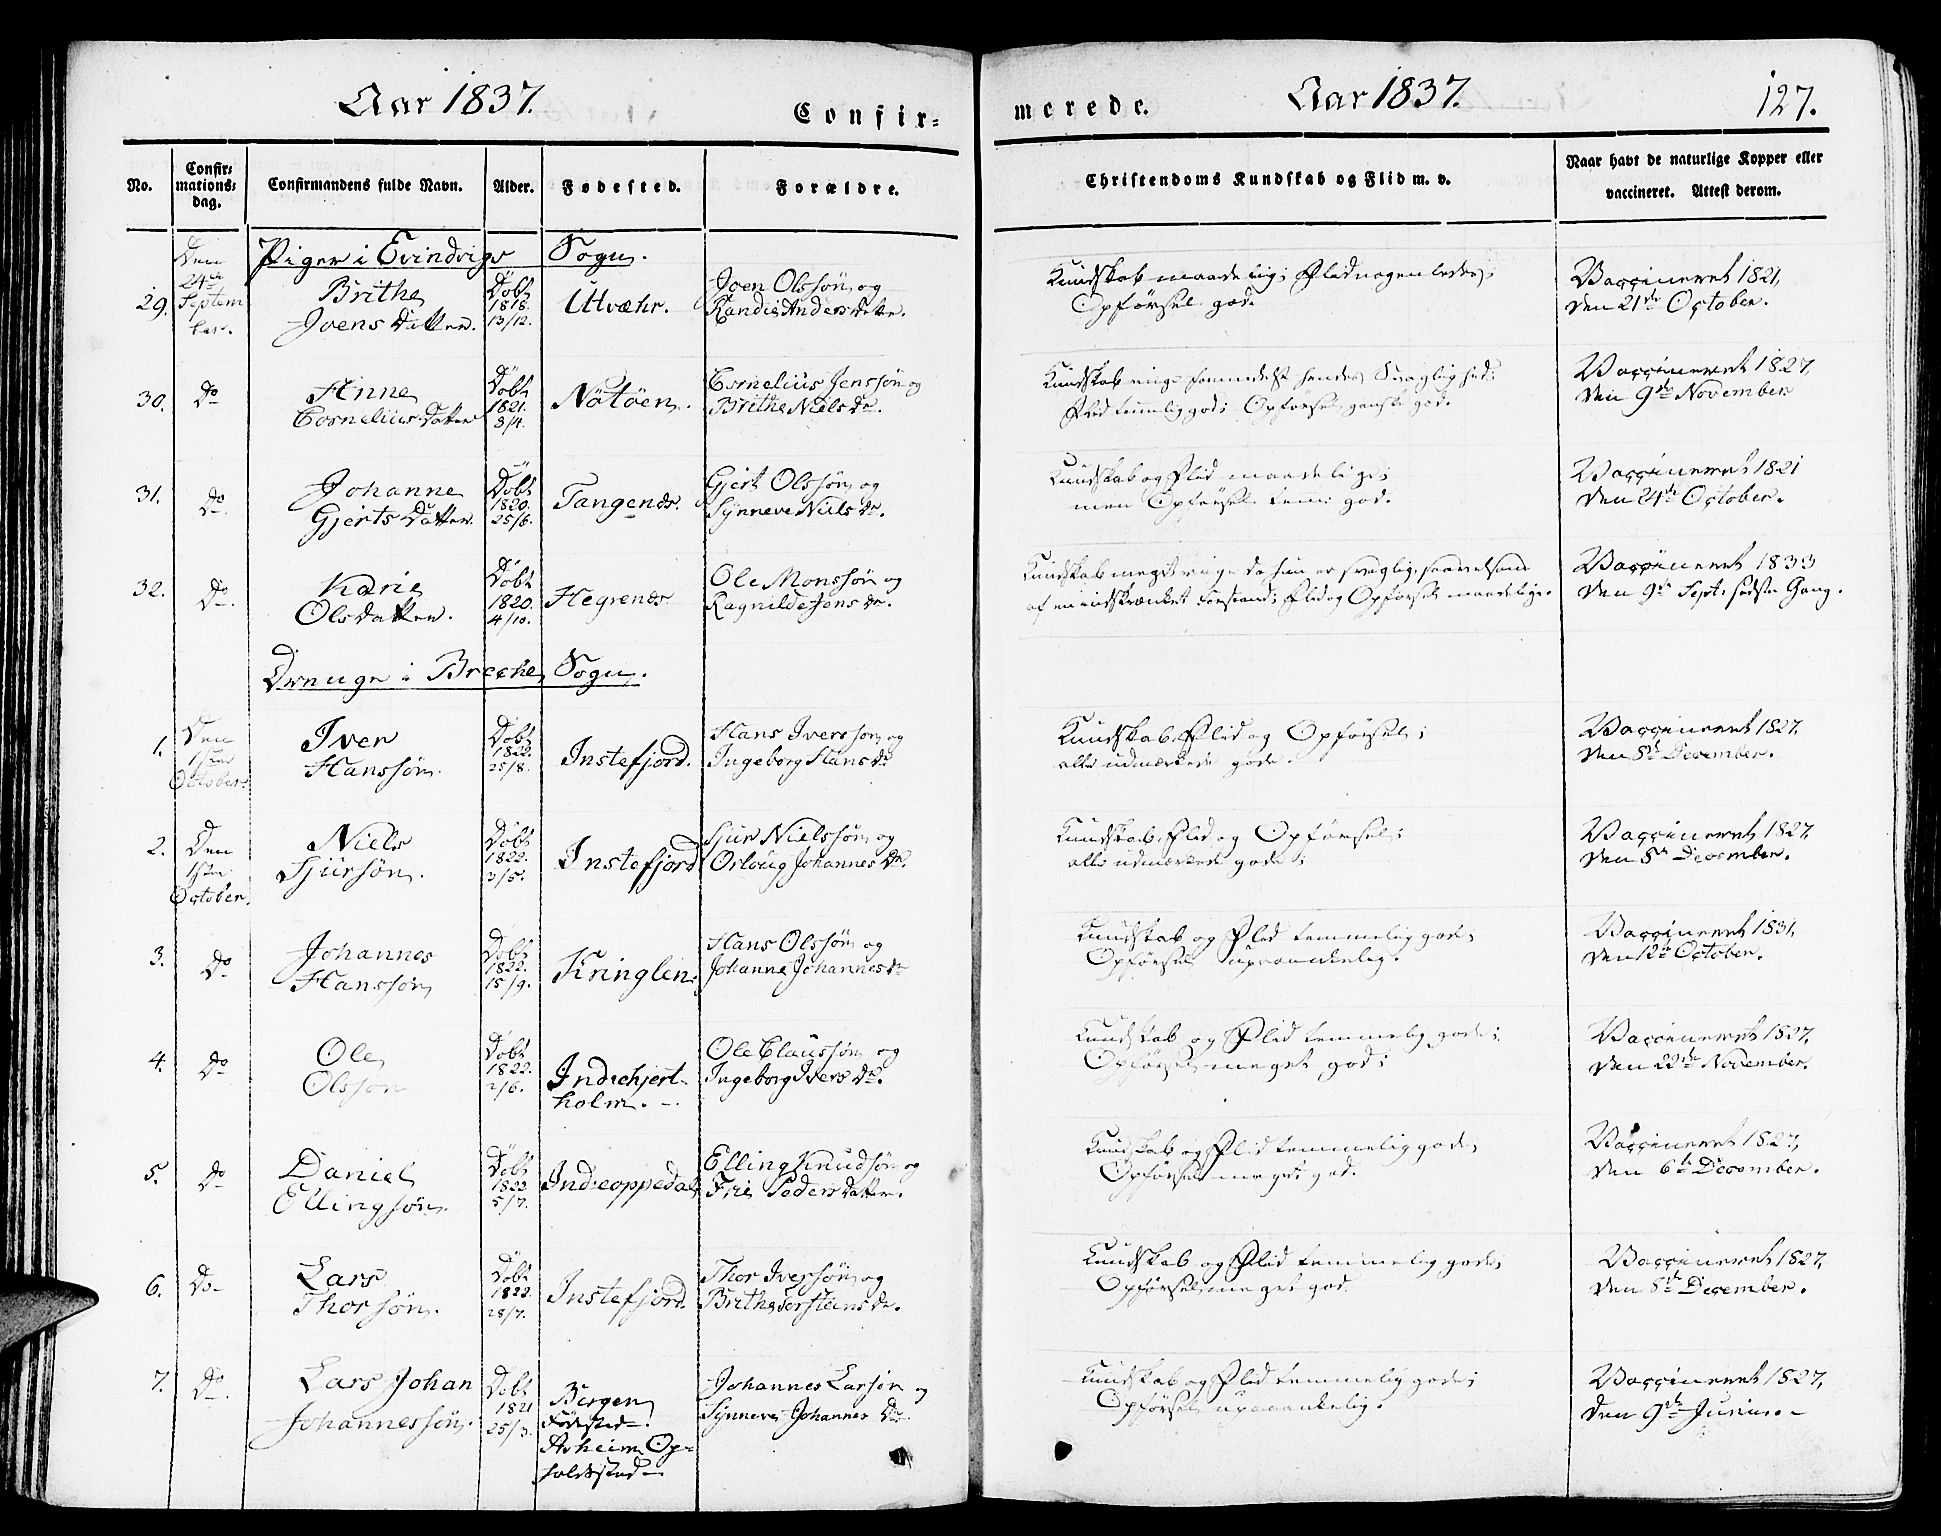 Aar 1837.
Confir=
merede.
Aar 1837.
127.
No.
Confir=
mations=
dag.
Confirmandens fulde Navn.
Alder.
Fødested.
Forældre.
Christendoms Kundskab og Flid m. v.
Naar havt de naturlige Kopper eller
vaccineret. Attest derom.
Piger i Evindvigs Sogn.
29.
Den
24de
Septem
ber.
Brithe
Joens Datter.
Döbt
1818.
13/12.
Utvæhr.
Joen Olssøn og
Randie Anders Datter.
Kundskab maadelig; Flid nogenledes;
Opførsel god.
Vaccineret 1821,
den 21de October.
30.
Do
Anne
Cornelius Datter
Döbt
1821.
3/4.
Nötöen.
Cornelius Jenssøn og
Brithe Niels Dr.
Kundskab ringe formedelst hendes Svaglighed;
Flid temmelig god; Opførsel ganske god.
Vaccineret 1827,
den 9de November
31.
Do
Johanne
Gjerts Datter.
Döbt
1820.
25/6.
Tangenes.
Gjert Olssøn og
Synneve Niels Dr.
Kundskab og Flid maadelige;
men Opførsel tem: god.
Vaccineret 1821
den 24de October.
32.
Do.
Karie
Olsdatter.
Döbt
1820.
4/10.
Hegrenes
Ole Monssøn og
Ragnilde Jens Dr.
Kundskab meget ringe da hun er svaglig, saavelsom
af en indskrænket Forstand; Flid og Opførsel maadelige.
Vaccineret 1833
den 9de Sept. sidste Gang.
Drenge i Brekke Sogn.
1.
Den
1ste
October
Iver
Hanssøn.
Döbt
1822.
25/8.
Instefjord.
Hans Iverssøn og
Ingeborg Hans Dr
Kundskab, Flid og Opførsel;
alle udmærkede gode.
Vaccineret 1827,
den 8de December.
2.
Den
1ste
October.
Niels
Sjursøn.
Döbt
1822.
3/5.
Instefjord
Sjur Nielssøn og
Orloug Johannes Dr.
Kundskab, Flid og Opførsel;
alle udmærkede gode;
Vaccineret 1827,
den 8de December.
3.
Do
Johannes
Hanssøn
Döbt
1822.
15/9.
Kringlen.
Hans Olssøn og
Johanne Johannes Dr
Kundskab og Flid temmelig gode;
Opførsel upaaankelig.
Vaccineret 1831,
den 12te October.
4.
Do
Ole
Olssøn
Döbt
1822.
2/6.
Indrehjert-
holm.
Ole Claussøn og
Ingeborg Ivers Dr.
Kundskab og Flid temmelig gode;
Opførsel meget god;
Vaccineret 1827,
den 22de November.
5.
Do
Daniel
Ellingsøn.
Döbt
1822
5/7.
Indreoppedal
Elling Knudsøn og
Peders Datter.
Kundskab og Flid temmelig gode;
Opførsel meget god.
Vaccineret 1827,
den 6te December.
6.
Do
Lars
Thorsøn.
Döbt
1822.
28/7.
Instefjord
Thor Iversøn og
Brithe Torsteins Dr.
Kundskab og Flid temmelig gode;
Opførsel meget god.
Vaccineret 1827,
den 8de December.
7.
Do.
Lars Johan
Johannessøn.
Döbt
1821
25/3.
Bergen
Födested.
Asheim Op-
holdsted
Johannes Larsøn og
Synneve Johannes Dr.
Kundskab og Flid temmelig gode;
Opførsel upaaankelig.
Vaccineret 1827,
den 9de Junius.